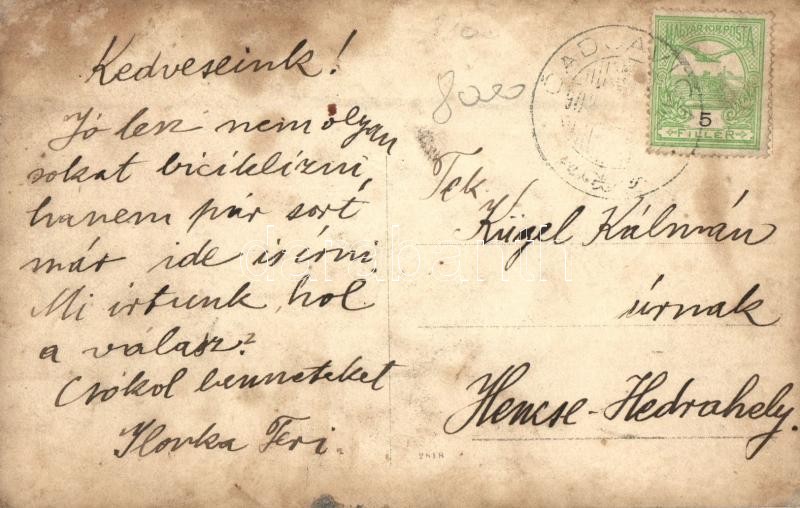 Kedveseink!
Jó lesz nem olyan
sokat biciklizni,
hanem pár sort
már ide is írni.
Mi írtunk, hol
a válasz?
Csókol benneteket
Ilonka Feri.
8000
MAGYAR KIR. POSTA
5
FILLÉR
Tek.
Kügel Kálmán
úrnak
Hencse-Hedrahely.
2818
darabanth